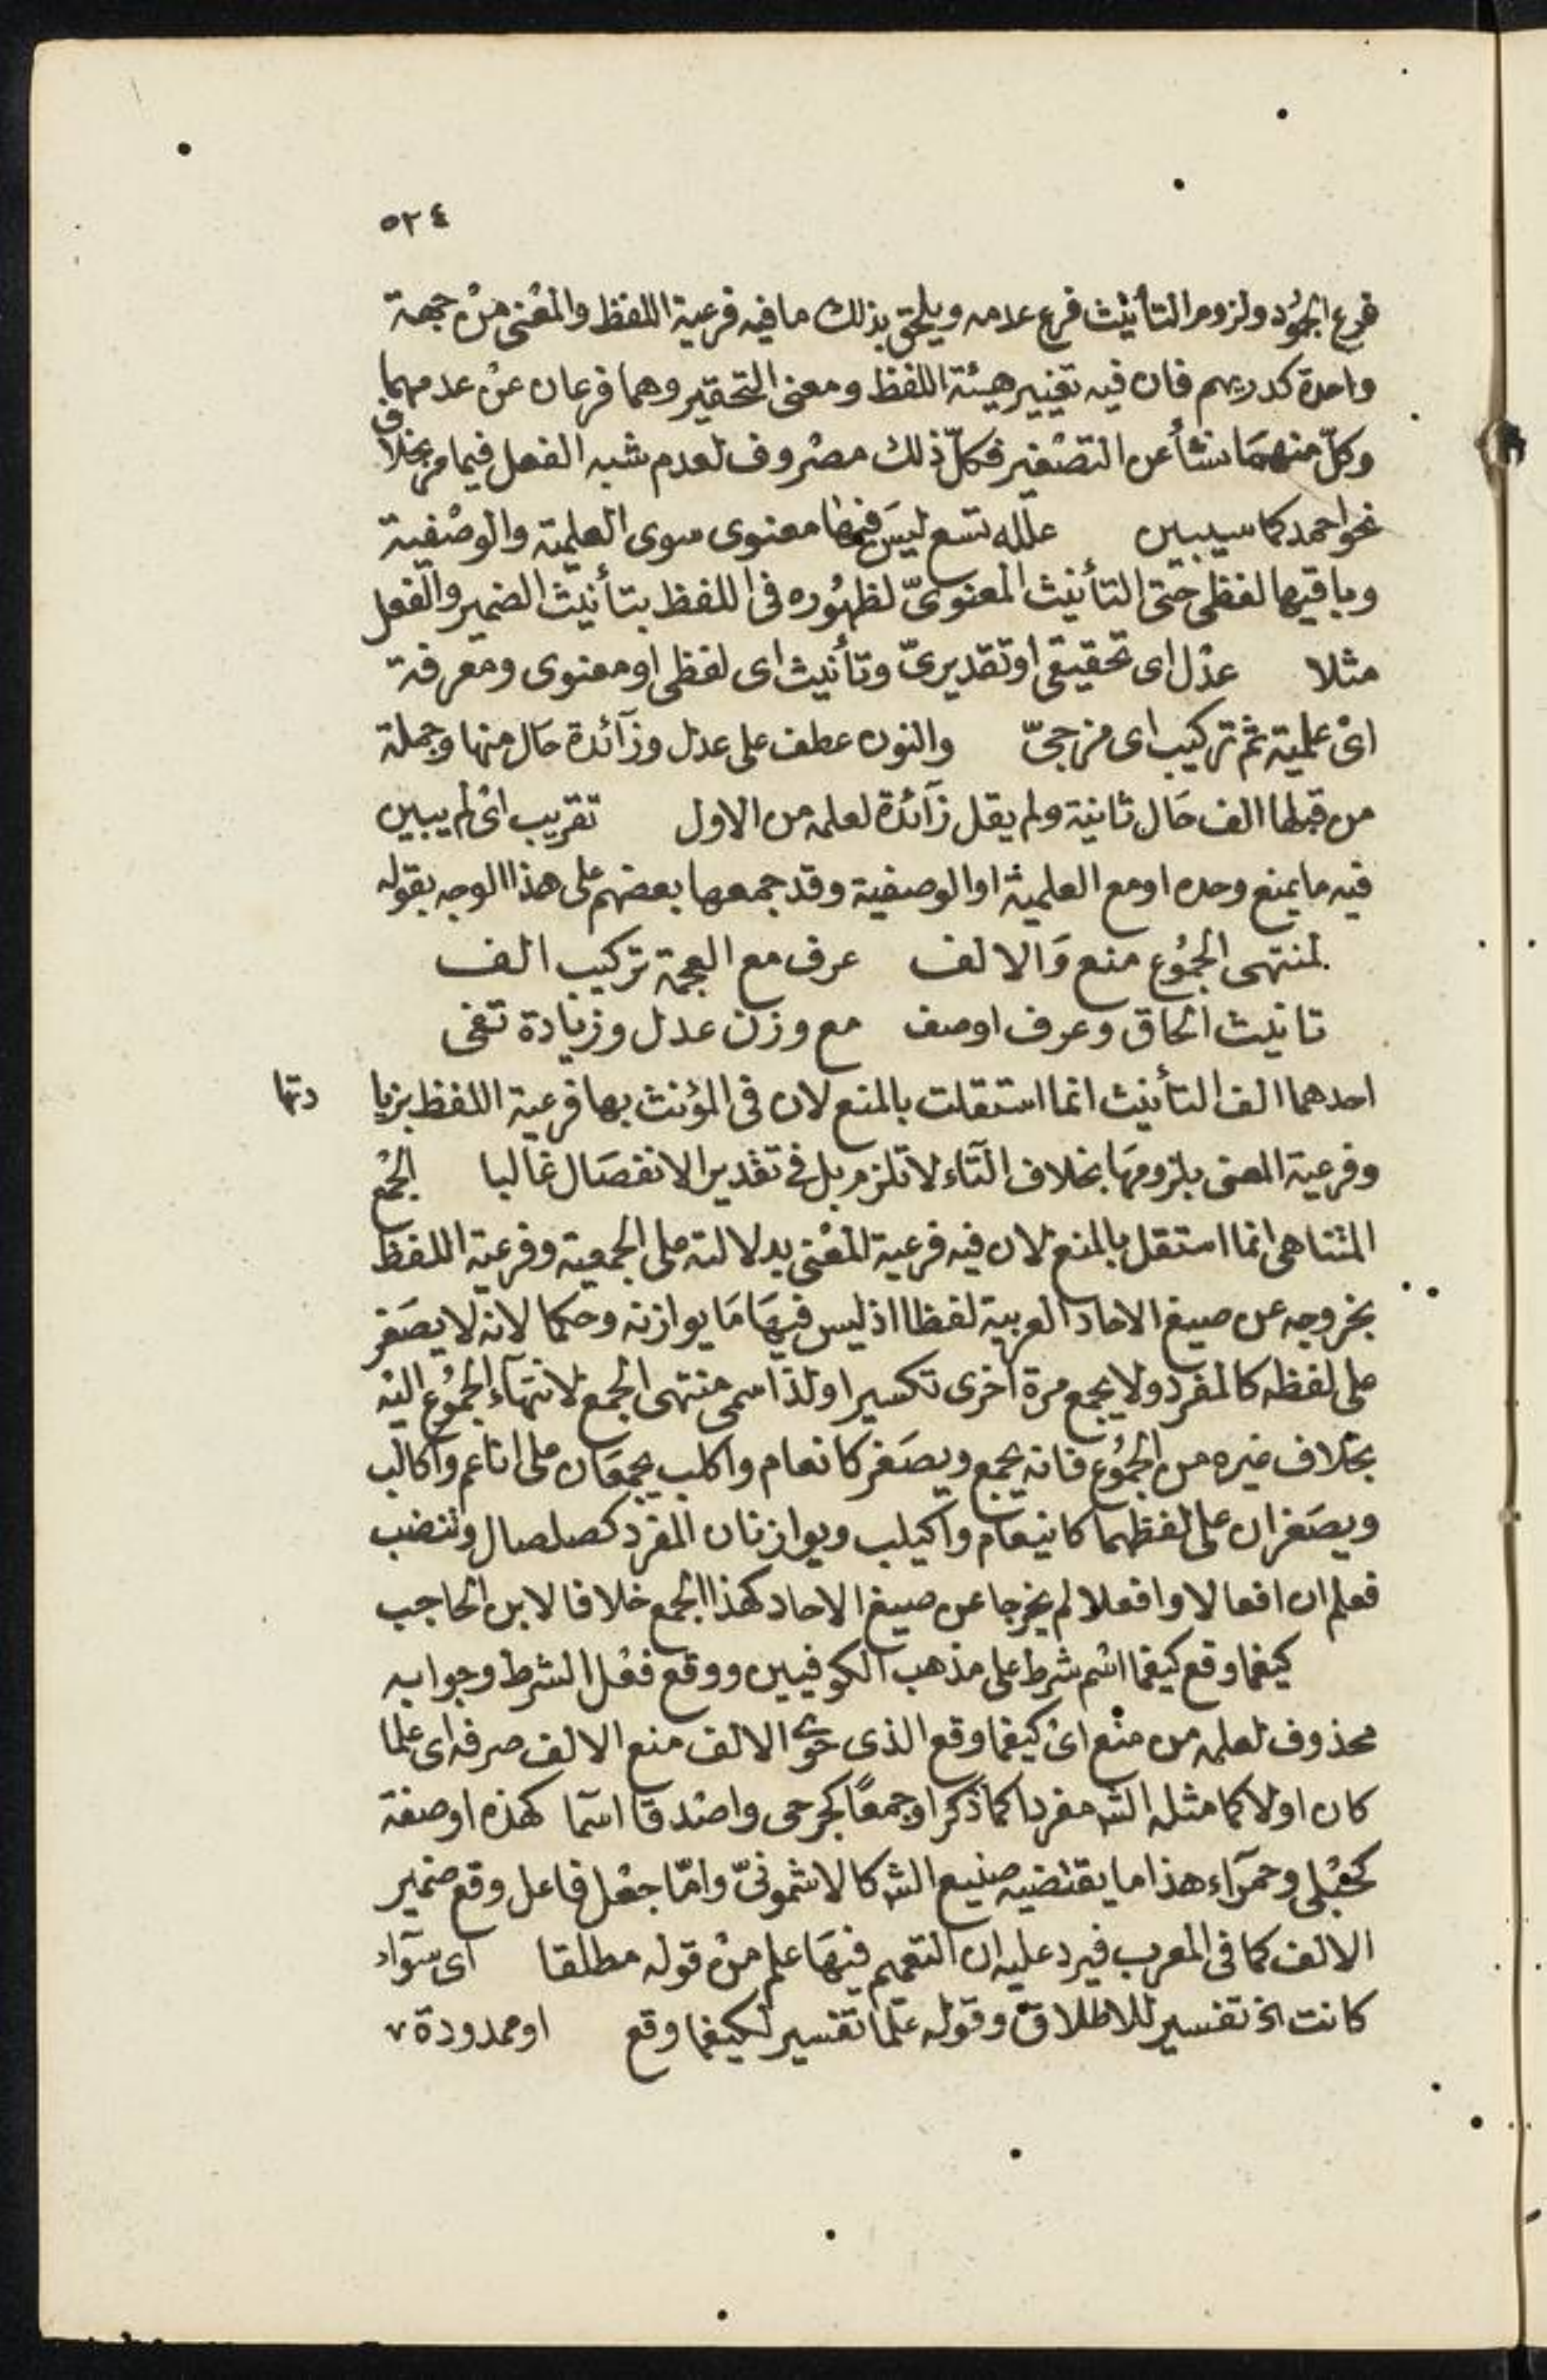 ٥٢٤
فرع الجمود ولزوم التأنيث فرع علامه ويلحق بذلك ما فيه فرعية اللفظ والمعنى من جهة
واحدة كدريهم فان فيه تغيير هيئة اللفظ ومعنى التحقير وهما فرعان عن عدمهما
وكلّ منهما نشأ عن التصغير فكلّ ذلك مصروف لعدم شبه الفعل فيما مر بخلاف
نحو احمد كما سيبين علله تسع ليس فيها معنوى سوى العلمية والوصفية
وباقيها لفظى حتى التأنيث المعنوىّ لظهوره فى اللفظ بتأنيث الضمير والفعل
مثلا عدل اى تحقيقى او تقديرىّ وتأنيث اى لفظى او معنوى ومعرفة
اى علمية ثم تركيب اى مزجىّ والنون عطف على عدل وزآئدة حال منها وجملة
من قبلها الف حال ثانية ولم يقل زآئدة لعلمه من الاول تقريب اى لم يبين
فيه ما يمنع وحده او مع العلمية او الوصفية وقد جمعها بعضهم على هذا الوجه بقوله
لمنتهى الجموع منع والالف عرف مع العجمة تركيب الف
تانيث الحاق وعرف او صف مع وزن عدل وزيادة تفى
احدهما الف التأنيث انما استقلت بالمنع لان فى المؤنث بها فرعية اللفظ بزيا دتها
وفرعية المعنى بلزومها بخلاف التآء لا تلزم بل فى تقدير الانفصال غالبا الجمع
المتناهى انما استقل بالمنع لان فيه فرعية المعنى بدلالته على الجمعية وفرعية اللفظ
بخروجه عن صيغ الاحاد العربية لفظا اذ ليس فيها ما يوازنه وحكما لانه لا يصغر
على لفظه كالمفرد ولا يجمع مرة اخرى تكسيرا ولذا سمى منتهى الجمع لانتهآء الجموع اليه
بخلاف غيره من الجموع فانه يجمع ويصغر كانعام واكلب يجمعان على اناعم واكالب
ويصغران على لفظهما كانيعام واكيلب ويوازنان المفرد كصلصال وتنضب
فعلم ان افعالا وافعلا لم يخرجا عن صيغ الاحاد كهذا الجمع خلافا لابن الحاجب
كيفما وقع كيفما اسم شرط على مذهب الكوفيين ووقع فعل الشرط وجوابه
محذوف لعلمه من منع اى كيفما وقع الذى حوى الالف منع الالف صرفه اى علما
كان اولا كما مثله الشـ مفردا كما ذكر او جمعًا كجرحى واصدقا اسما كهذه او صفة
كحبلى وحمرآء هذا ما يقتضيه صنيع الشـ كالاشمونىّ وامّا جعل فاعل وقع ضمير
الالف كما فى المعرب فيرد عليه ان التعميم فيها علم من قوله مطلقا اى سوآء
كانت الخ تفسير للاطلاق وقوله علما تفسير لكيفما وقع او ممدودة